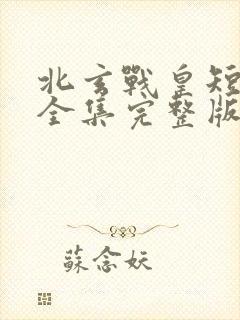 北玄戰皇短
全集完整版
蘇念妖